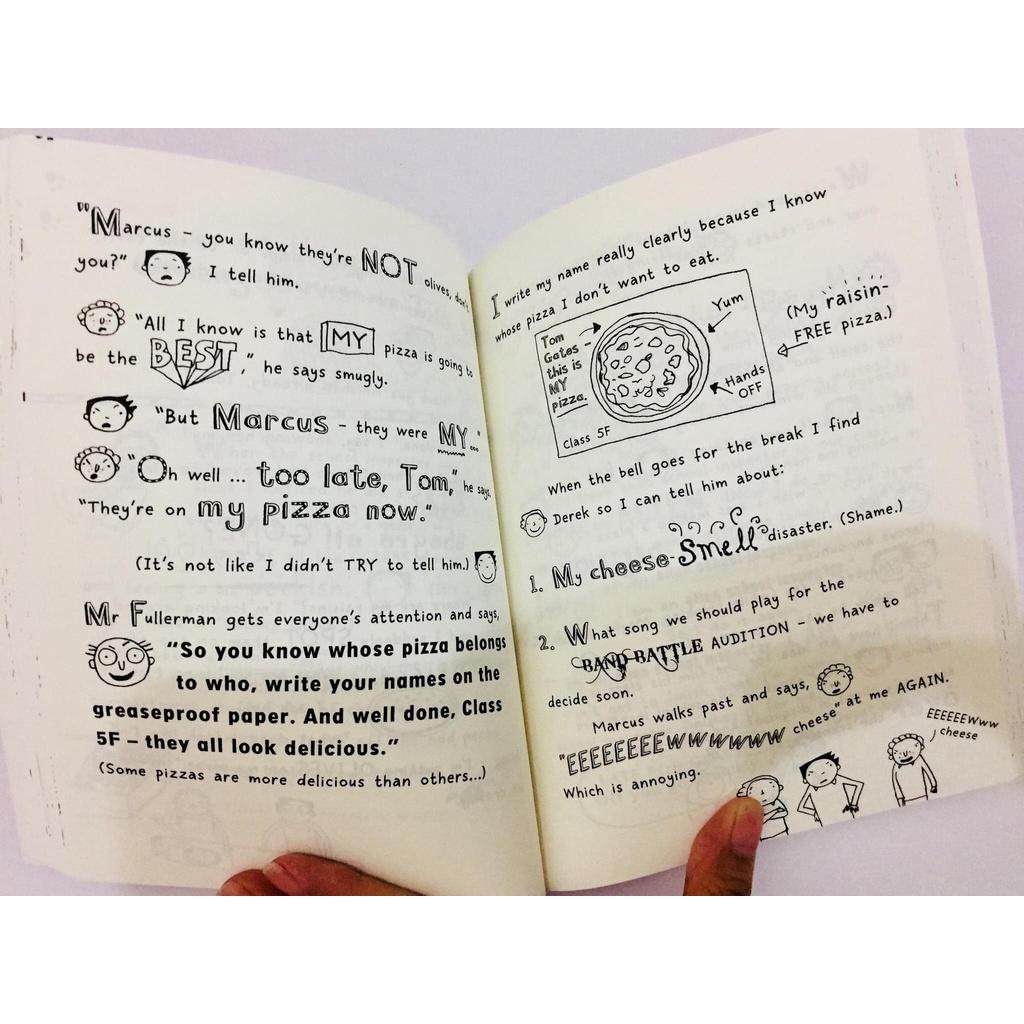 "Marcus - you know they're NOT olives, don't
you?" I tell him.
"All I know is that MY pizza is going to
be the BEST," he says smugly.
"But Marcus - they were MY..."
"Oh well ... too late, Tom," he says.
"They're on my pizza now."
(It's not like I didn't TRY to tell him.)
Mr Fullerman gets everyone's attention and says,
"So you know whose pizza belongs
to who, write your names on the
greaseproof paper. And well done, Class
5F – they all look delicious."
(Some pizzas are more delicious than others...)
I write my name really clearly because I know
whose pizza I don't want to eat.
Tom
Gates -
this is
MY
pizza.
Class 5F
Yum
Hands
OFF
(My raisin-
FREE pizza.)
When the bell goes for the break I find
Derek so I can tell him about:
1. My cheese-smell disaster. (Shame.)
2. What song we should play for the
BAND BATTLE AUDITION - we have to
decide soon.
Marcus walks past and says,
"EEEEEEEEwwwwww cheese" at me AGAIN.
Which is annoying.
EEEEEEwww
cheese